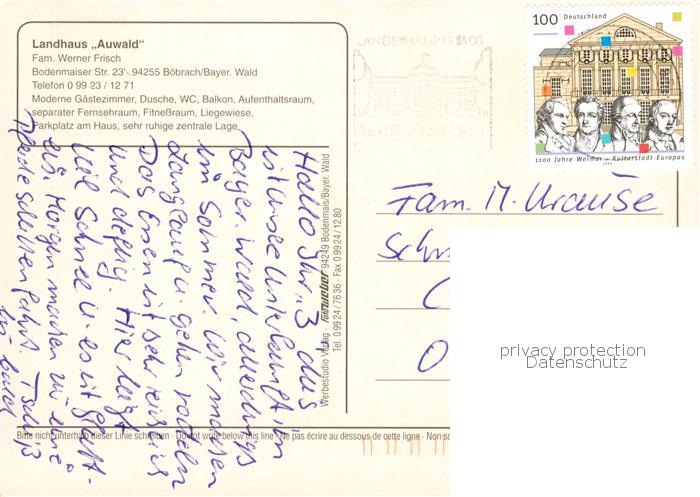 Landhaus „Auwald"
Fam. Werner Frisch
Bodenmaiser Str. 23 · 94255 Böbrach/Bayer. Wald
Telefon 0 99 23 / 12 71
Moderne Gästezimmer, Dusche, WC, Balkon, Aufenthaltsraum,
separater Fernsehraum, Fitneßraum, Liegewiese,
Parkplatz am Haus, sehr ruhige zentrale Lage
LANDESHAUPTSTADT
100 Deutschland
1100 Jahre Weimar – Kulturstadt Europas
1999
Hallo Ihr 3, das
ist unsere Unterkunft im
Bayer. Wald, allerdings
im Sommer. Wir machen
Langlauf u. gehen rodeln
Das Essen ist sehr reichlich
und deftig. Hier liegt
viel Schnee u. es ist glatt-
eis. Morgen machen wir eine
Pferdeschlittenfahrt. Tschüß
bis bald
Werbestudio Verlag · 94249 Bodenmais/Bayer. Wald
Tel. 0 99 24 / 76 36 · Fax 0 99 24 / 12 80
Fam. M. Krause
Sch
O
privacy protection
Datenschutz
Bitte nicht unterhalb dieser Linie schreiben · Do not write below this line · Ne pas écrire au dessous de cette ligne · Non sc